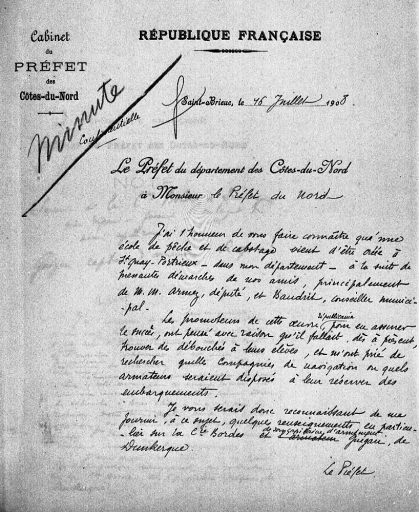 Cabinet
du
PRÉFET
des
Côtes-du-Nord
RÉPUBLIQUE FRANÇAISE
Minute
Confidentielle
Saint-Brieuc, le 16 Juillet 1908
Le Préfet du département des Côtes-du-Nord
à Monsieur le Préfet du Nord
J'ai l'honneur de vous faire connaître qu'une
école de pêche et de cabotage vient d'être créée à
St Quay-Portrieux - dans mon département - à la suite de
pressantes démarches de nos amis, principalement
de M.M. Armez, député, et Baudrit, conseiller munici-
pal.
Les promoteurs de cette œuvre républicaine, pour en assurer
le succès, ont pensé avec raison qu'il fallait dès à présent,
trouver de débouchés à leurs élèves, et m'ont prié de
rechercher quelles Compagnies de navigation ou quels
armateurs seraient disposés à leur réserver des
embarquements.
Je vous serais donc reconnaissant de me
fournir, à ce sujet, quelques renseignements en particu-
lier sur la Cie Bordes et d'armement, de
Dunkerque.
Le Préfet